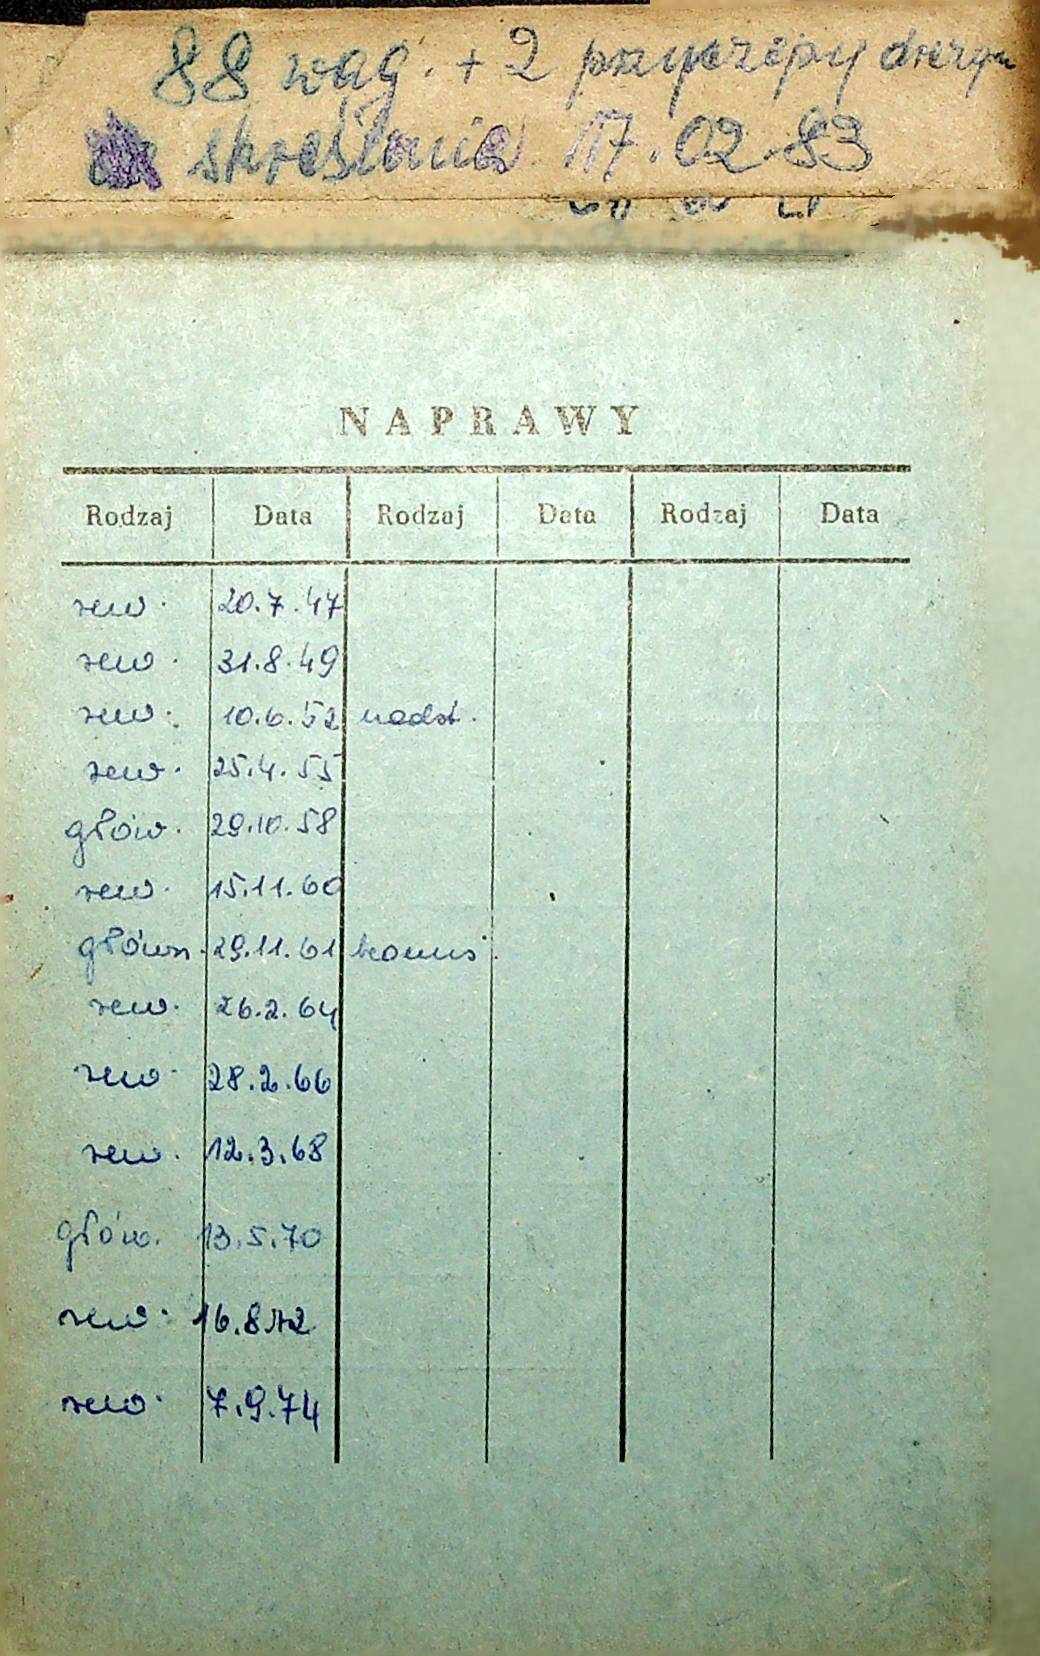 88 wag. + 2 przyczepy drezyn
skreślenia 17.02.83
NAPRAWY
Rodzaj Data Rodzaj Data Rodzaj Data
rew. 20.7.47
rew. 31.8.49
rew. 10.6.52 nadst.
rew. 25.4.55
głów. 29.10.58
rew. 15.11.60
główn. 29.11.61
rew. 26.2.64
rew. 28.2.66
rew. 12.3.68
głów. 13.5.70
rew. 16.8.72
rew. 7.9.74